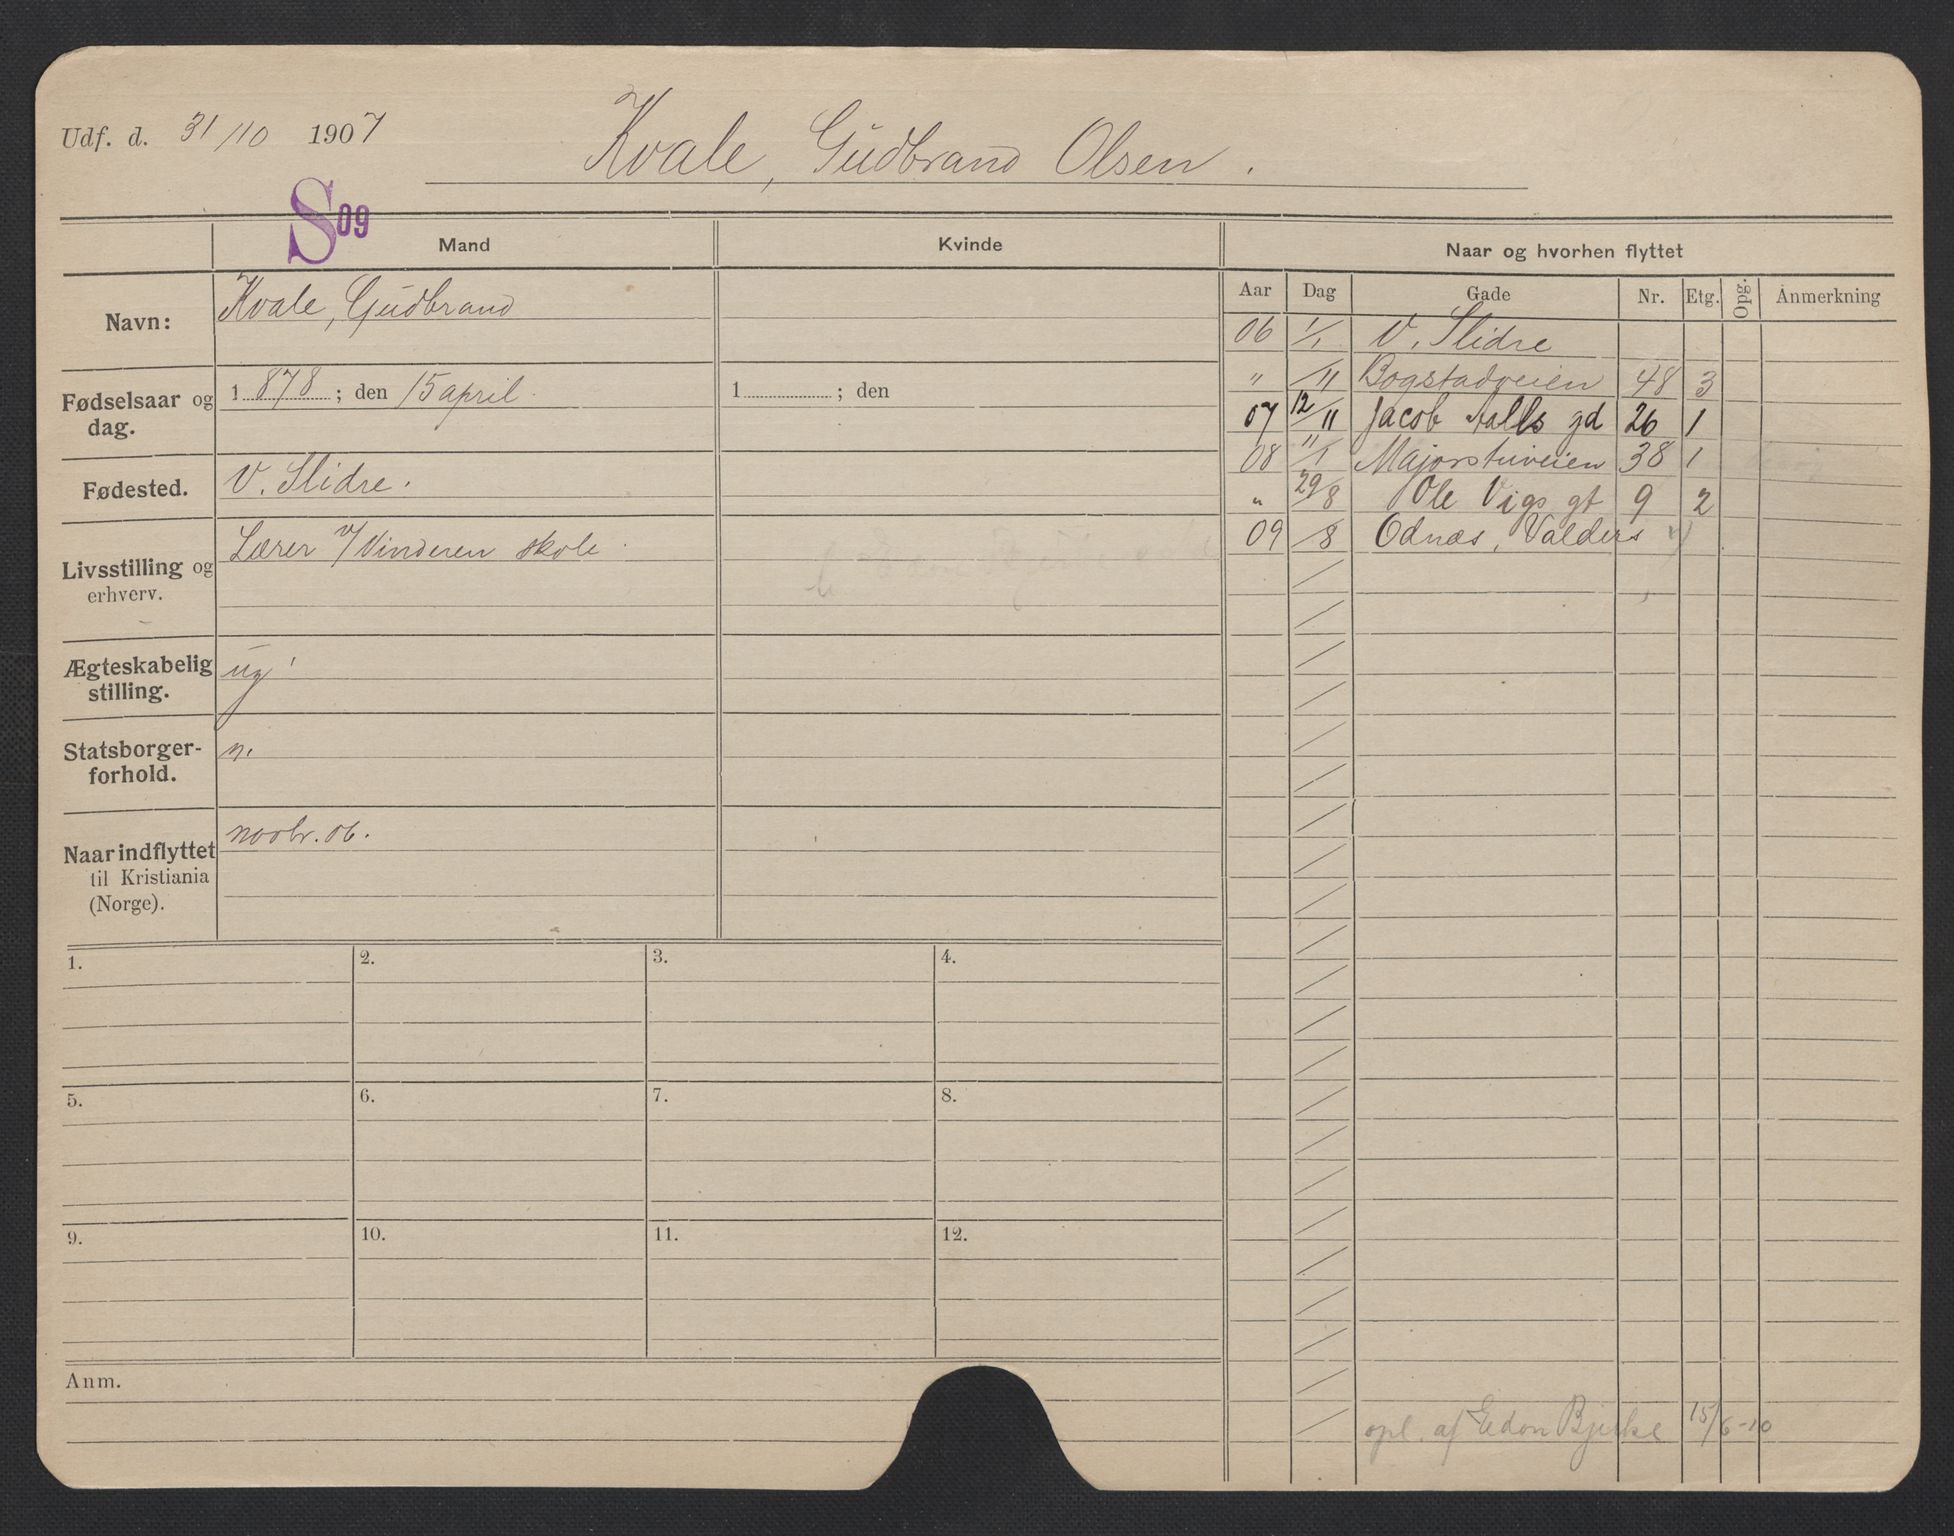 Udf. d. 31/10 1907
Kvale, Gudbrand Olsen.
S09
Mand
Kvinde
Naar og hvorhen flyttet
Aar Dag Gade Nr. Etg. Opg. Anmerkning
Navn: Kvale, Gudbrand
Fødselsaar og dag. 1878; den 15 april. 1 ; den
Fødested. V. Slidre.
Livsstilling og erhverv. Lærer v/Vinderen skole.
Ægteskabelig stilling. ug
Statsborgerforhold. n.
Naar indflyttet til Kristiania (Norge). novbr. 06.
06 1/1 V. Slidre
" /11 Bogstadveien 48 3
07 12/11 Jacob Aalls gd 26 1
08 11/1 Majorstuveien 38 1
" 29/8 Ole Vigs gt 9 2
09 /8 Odnæs, Valders
1. 2. 3. 4.
5. 6. 7. 8.
9. 10. 11. 12.
Anm.
opl. af Edon Bjerke 15/6-10